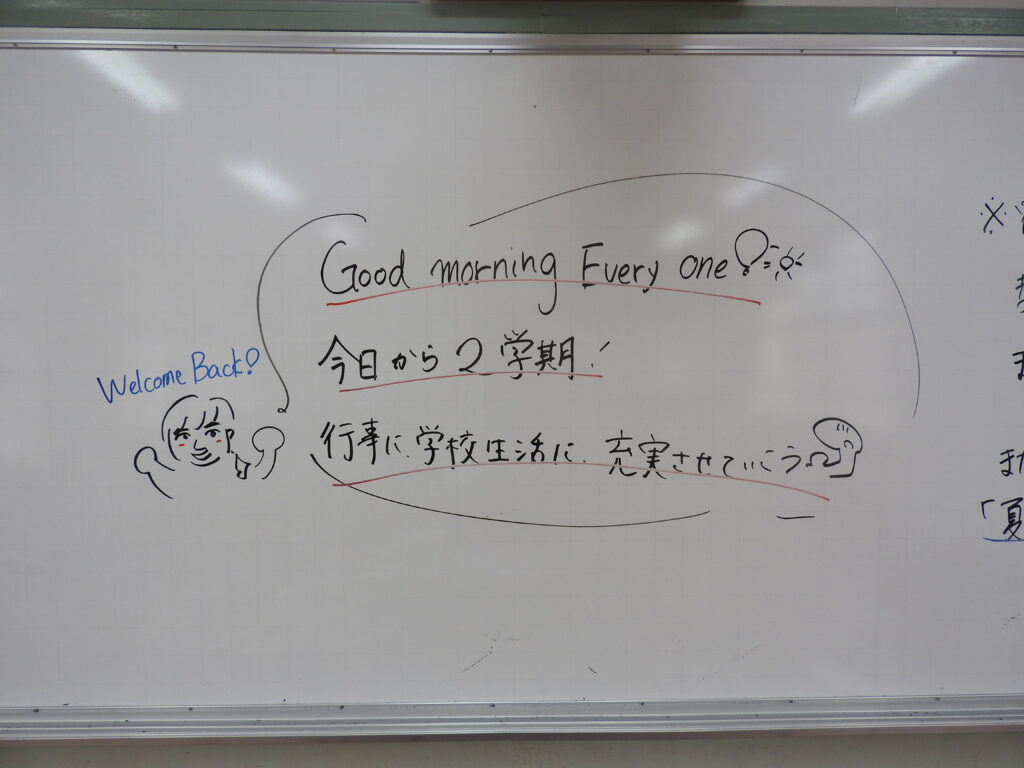 Good morning Every one!
今日から2学期!
行事に、学校生活に、充実させていこう
Welcome Back!
※
ま
「夏